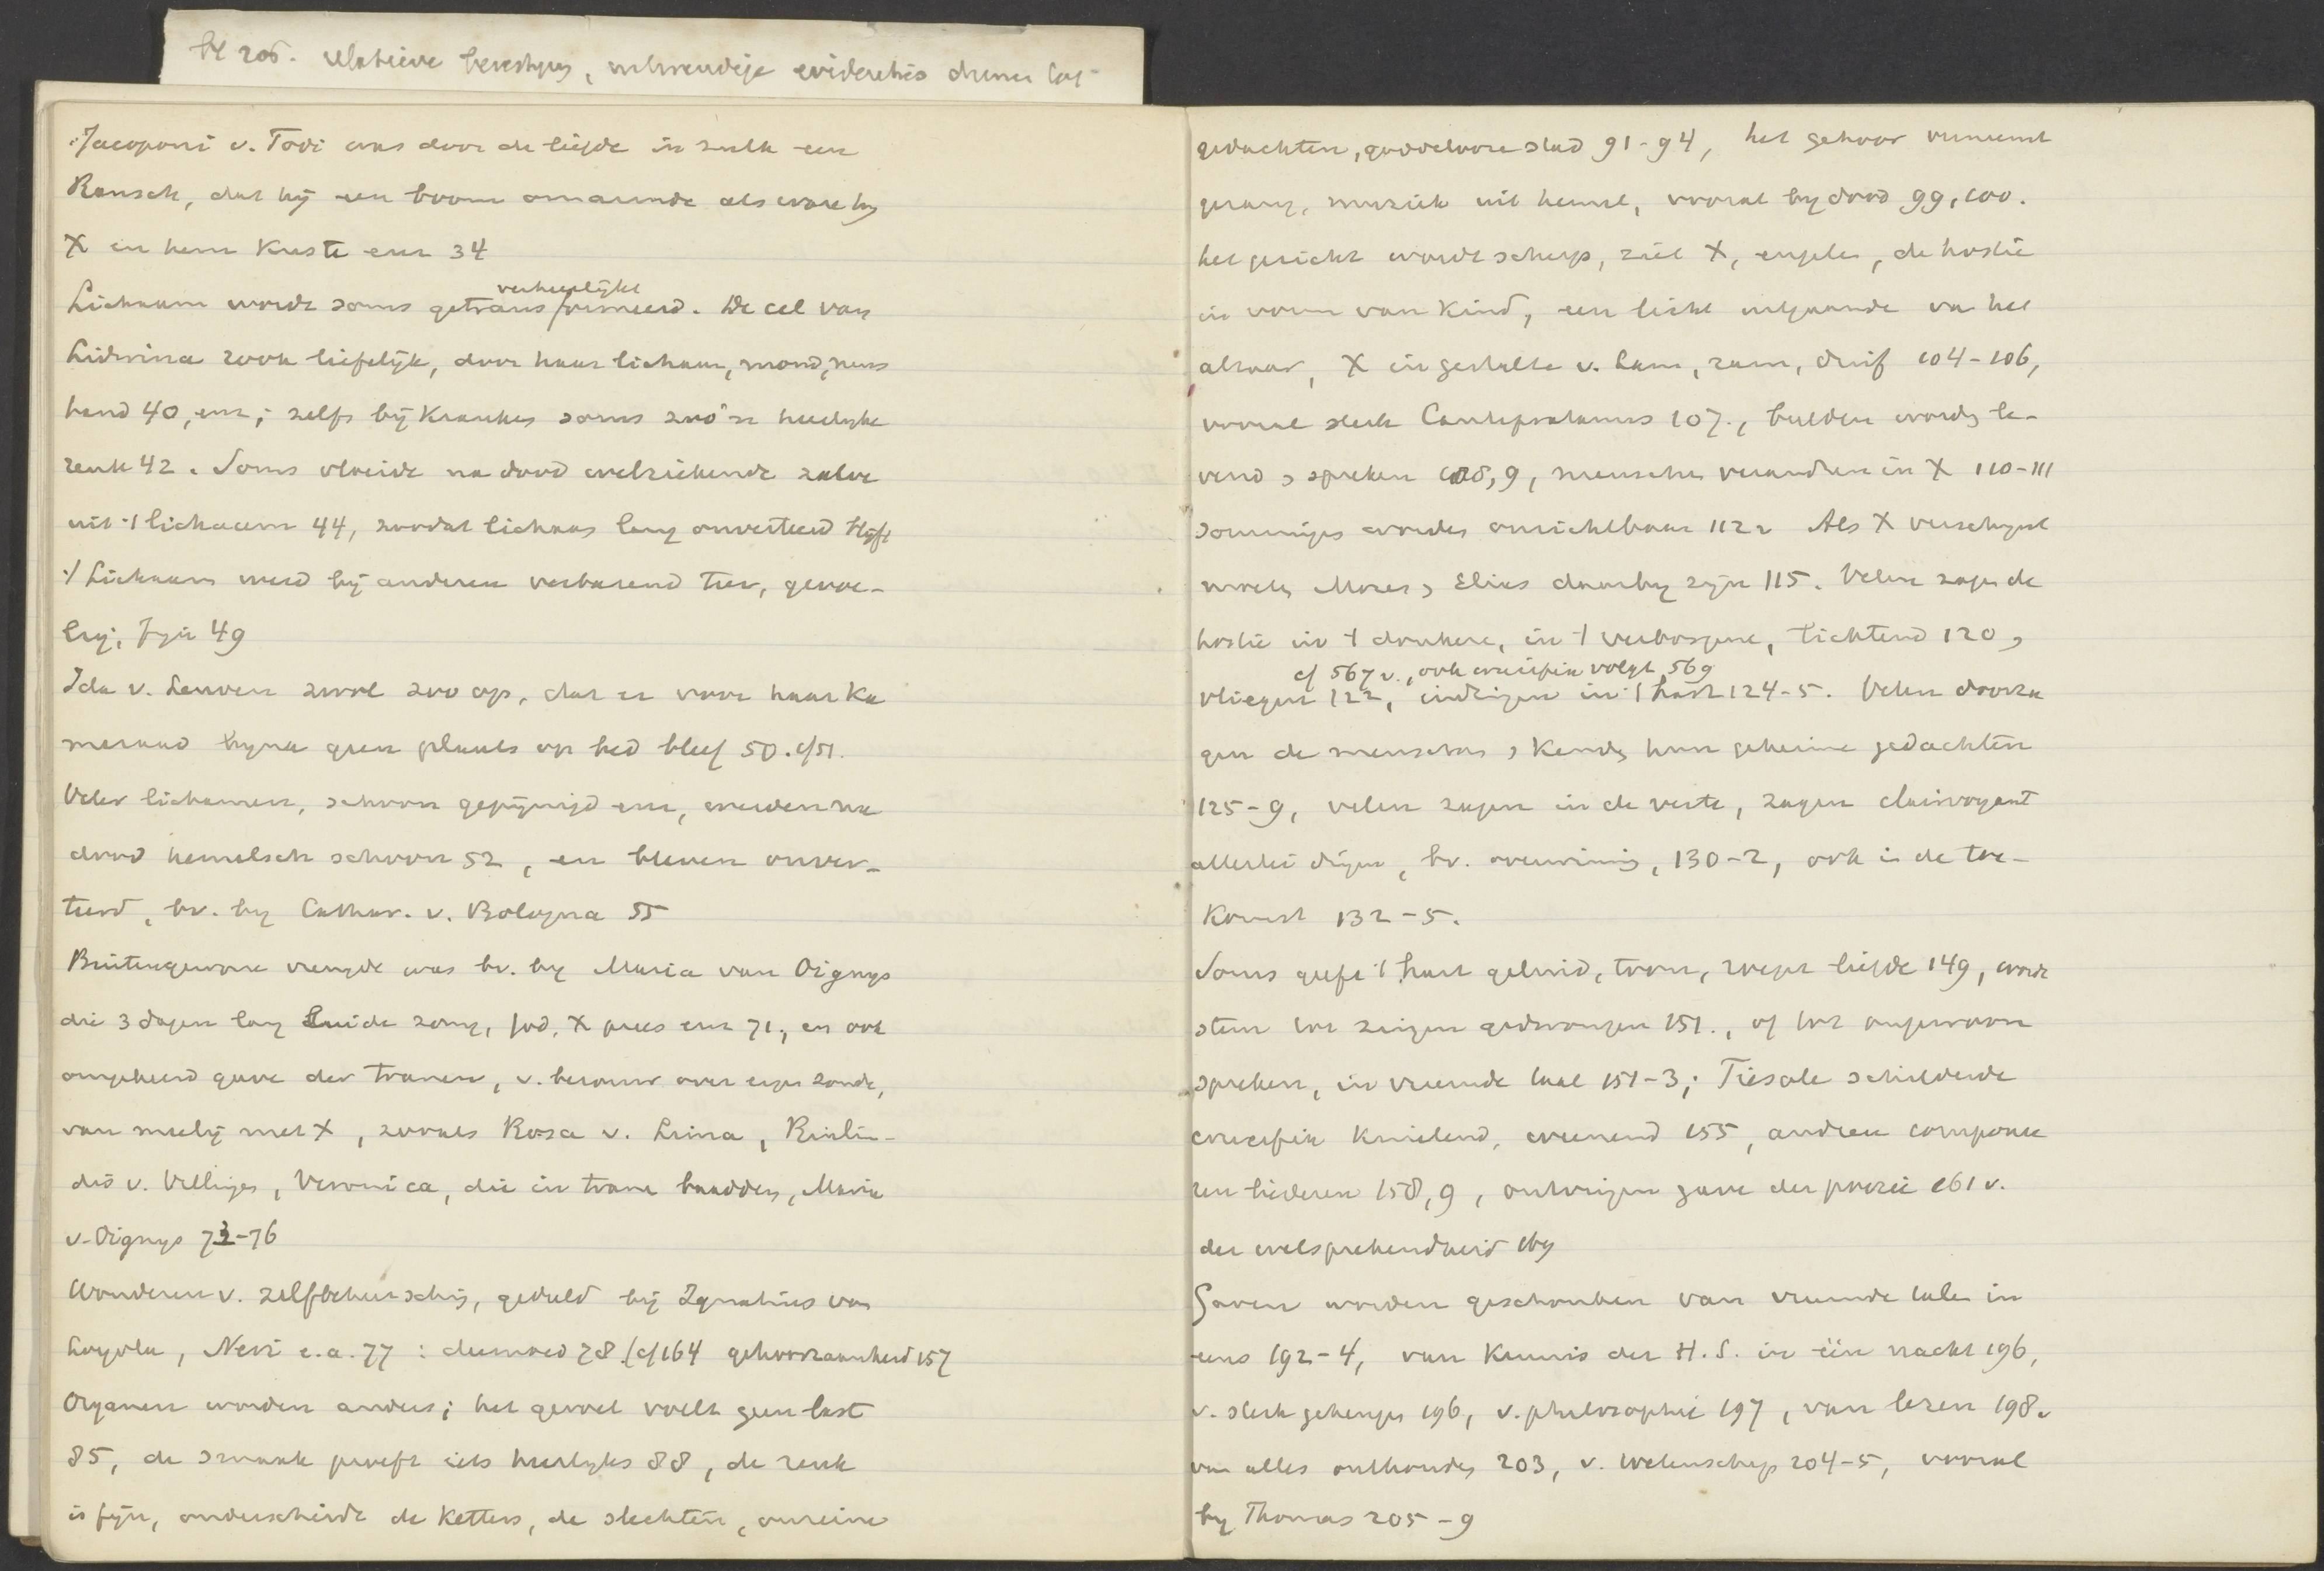 bl 205. relatieve
Jacoponi v. Todi was door de liefde in zulk een
Rausch, dat hij een boom omarmde als ware hij
X en hem kuste enz 34
verheerlijkt
Lichaam wordt soms getransformeerd. De cel van
Lidwina rook liefelijk, door haar lichaam, mond, neus
hand 40, enz; zelfs bij kranken soms zoo'n heerlijke
reuk 42. Soms vloeide na dood welriekende zalve
uit 't lichaam 44, zoodat lichaam lang onverteerd blijft
't Lichaam werd bij anderen verbazend teer, gevoe-
lig, fijn 49
Ida v. Leuven zwol zoo op, dat er voor haar ka
meraad bijna geen plaats op bed bleef 50. cf 51.
Veler lichamen, schoon gepijnigd enz, werden na
dood hemelsch schoon 52, en bleven onver-
teerd, bv. bij Cathar. v. Bologna 55
Buitengewone vreugde was bv. bij Maria van Oignys
die 3 dagen lang luide zong, God, X prees enz 71; en ook
omgekeerd gave der tranen, v. berouw over eigen zonde,
van medelij met X, zooals Rosa v. Lima,
v. Villingen, Veronica, die in tranen baadden, Maria
v. Oignys 73-76
Wonderen v. zelfbeheersching, geduld bij Ignatius van
Loyola, Neri e.a. 77: deemoed 78. (cf 164 gehoorzaamheid 157
Organen worden anders; het gevoel voelt geen last
85, de smaak proeft iets heerlijks 88, de reuk
is fijn, onderscheidt de ketters, de slechten, onreine
gedachten, goddelooze stad 91-94, het gehoor verneemt
gezang, muziek uit hemel, vooral bij dood 99, 100.
het gezicht wordt scherp, ziet X, engelen, de hostie
in vorm van kind, een licht uitgaande van het
altaar, X in gestalte v. Lam, ram, duif 104-106,
vooral sterk Cantipratanus 107., beelden worden le-
vend en spreken 108,9, menschen veranderen in X 110-111
Sommigen worden onzichtbaar 112. Als X verschijnt
moeten Mozes en Elias daarbij zijn 115. Velen zagen de
hostie in 't donkere, in 't verborgene, lichtend 120,
cf 567 v., ook crucifix volgt 569
vliegen 122, eindigen in 't hart 124-5. Velen doorza
gen de menschen en kenden hun geheime gedachten
125-9, velen zagen in de verte, zagen clairvoyant
allerlei dingen, bv. overwinning, 130-2, ook in de toe-
komst 132-5.
Soms geeft 't hart geluid, toon, liefde 149, wordt
stem tot zingen gedwongen 151., of tot ongewoon
spreken, in vreemde taal 151-3; Fiesole schilderde
crucifix knielend, weenend 155, andren componee
ren liederen 158,9, ontvingen gave der poezie 161 v.
der welsprekendheid
Gaven worden geschonken van vreemde talen in
eens 192-4, van kennis der H.S. in één nacht 196,
v. sterk geheugen 196, v. philosophie 197, van lezen 198.
van alles onthouden 203, v. wetenschap 204-5, vooral
bij Thomas 205-9